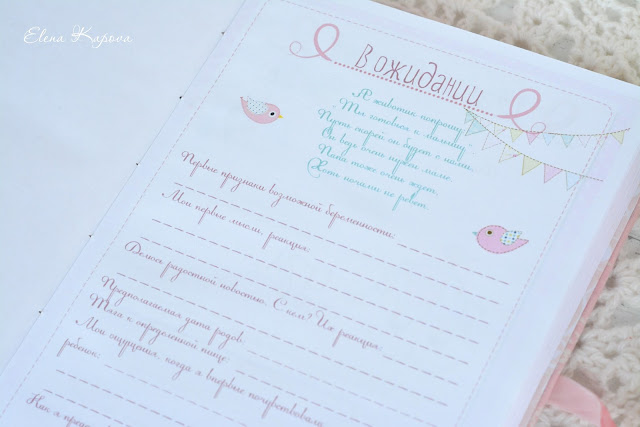 Elena Karova
В ожидании
А животик попрошу:
" Ты готовься к малышу"
Пусть скорей он будет с нами.
Он ведь очень нужен маме.
Папа тоже очень ждет,
Хоть ночами не ревет.
Первые признаки возможной беременности:
Мои первые мысли, реакция:
Делюсь радостной новостью. С кем? Их реакция:
Предполагаемая дата родов:
Тяга к определенной пище:
Мои ощущения, когда я впервые почувствовала
ребенка:
Как я